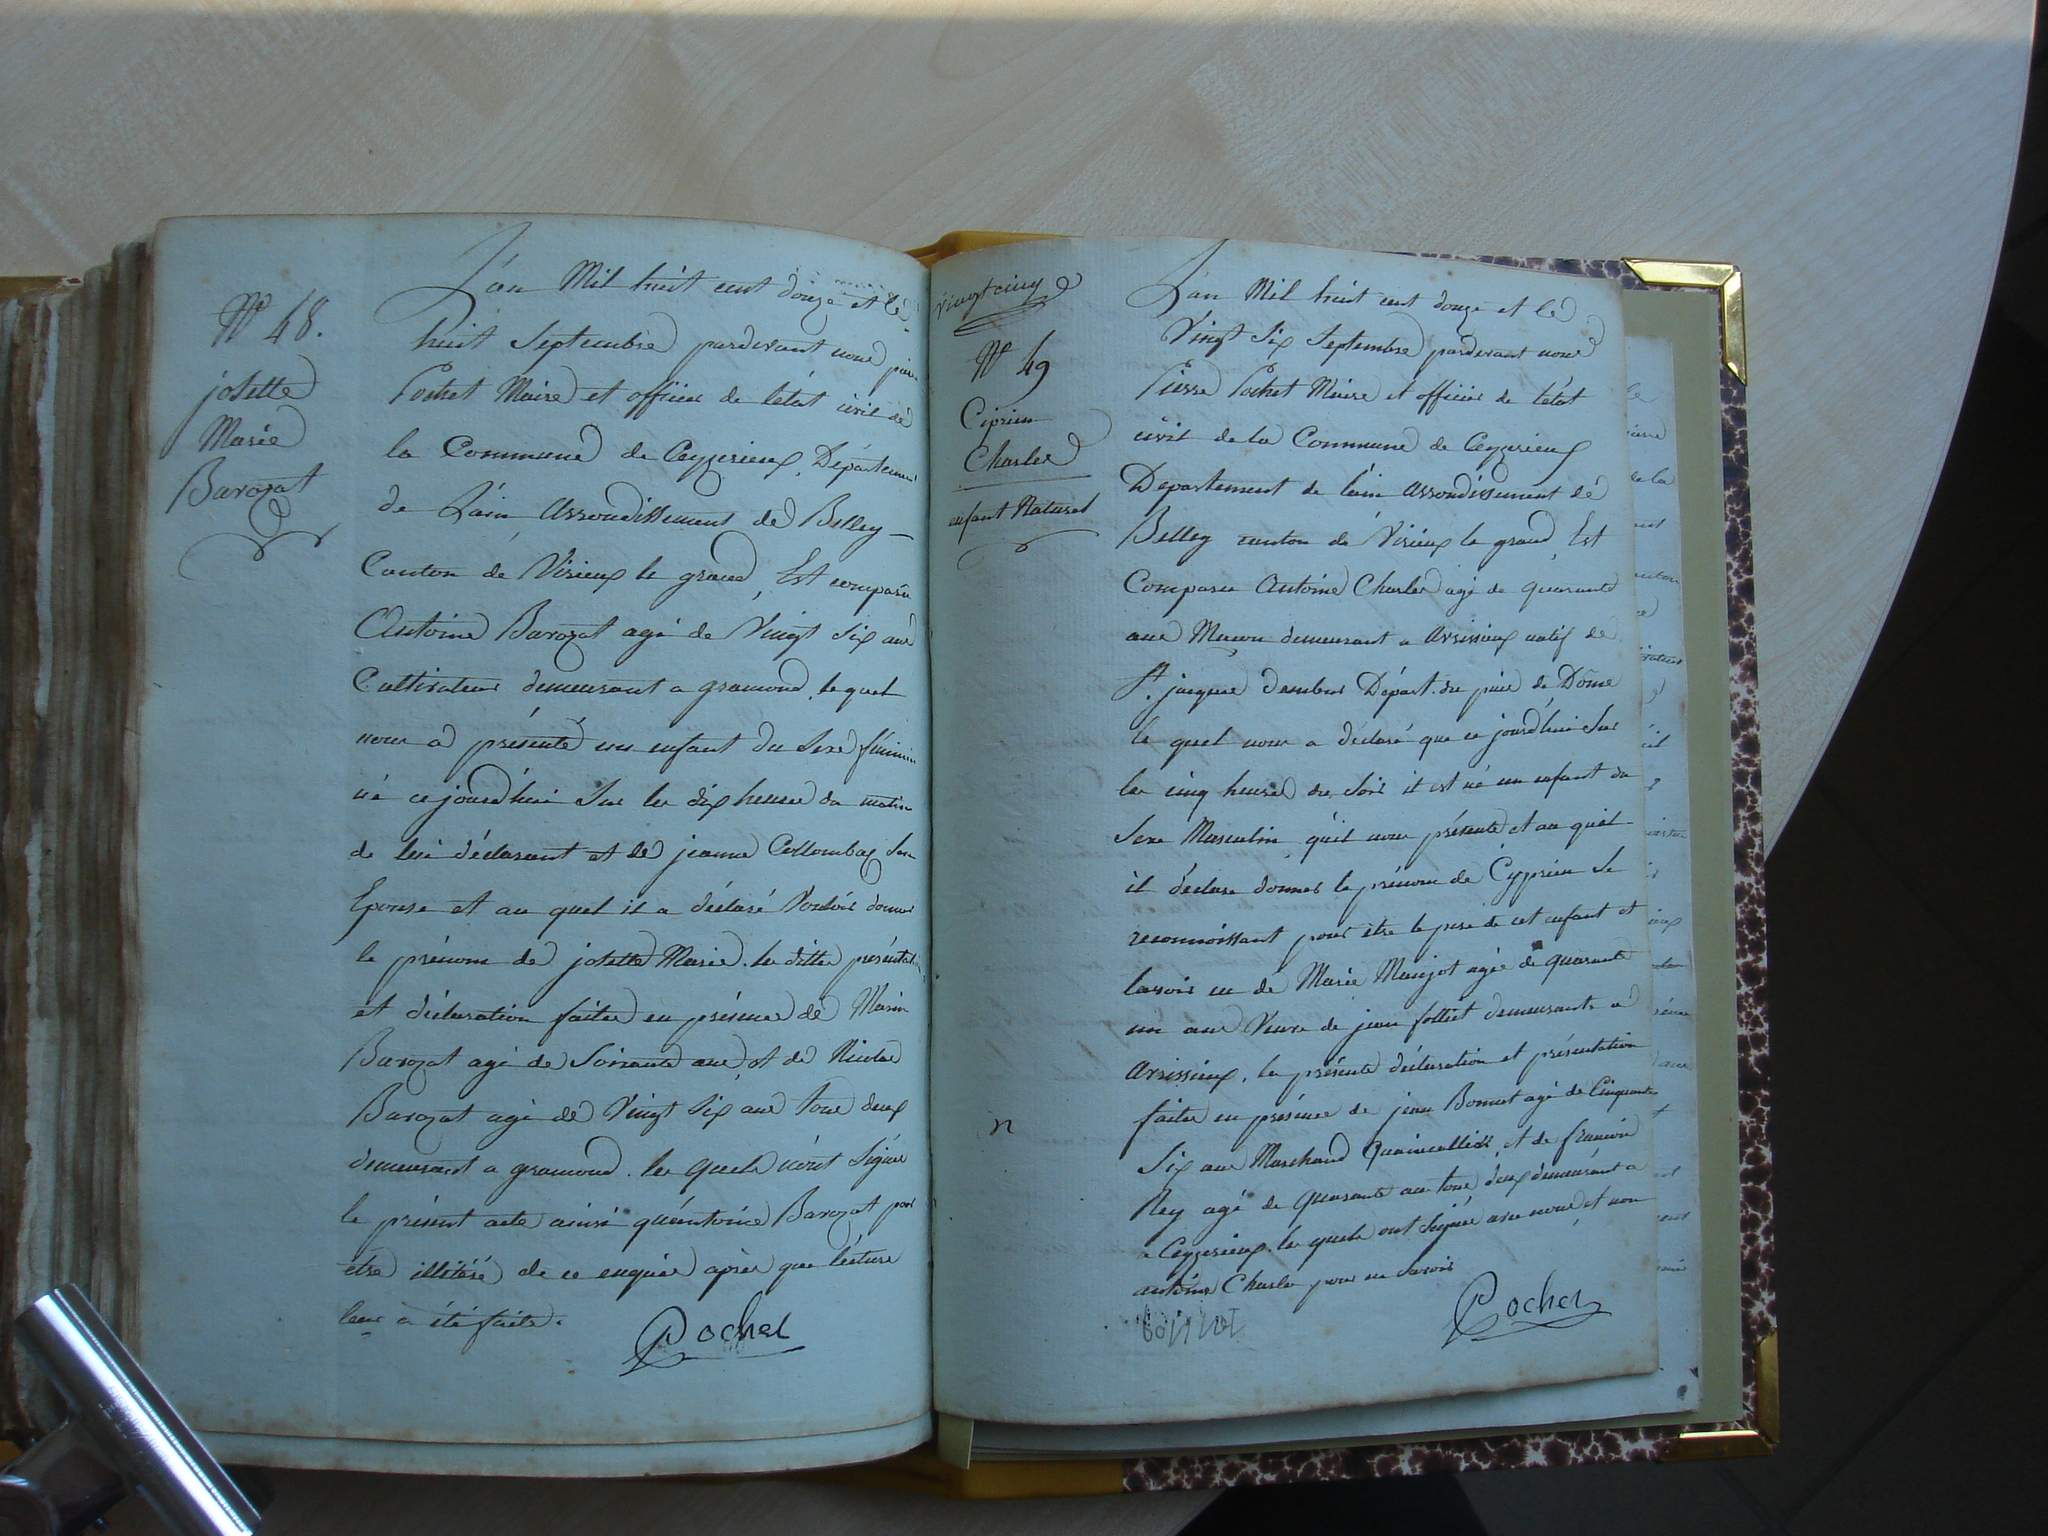 N° 48.
josette
Marie
Barozat
L'an Mil huit cent douze et le
huit Septembre pardevant nous pier
Pochet Maire et officier de létat civil de
la Commune de Ceyzerieux, Département
de L'ain Arrondissement de Belley
Canton de Virieux le grand, Est comparu
Antoine Barozat agé de Vingt Six ans
Cultivateur demeurant a gramond, le quel
nous a présenté un enfant du Sexe féminin
né ce jourd'hui Sur les dix heures du matin
de lui déclarant et de jeanne Collombaz Son
Epouse et au quel il a déclaré Vouloir donner
le prénom de josette Marie. les dittes présentation
et déclaration faites en présence de Marin
Barozat agé de Soixante ans, et de Nicolas
Barozat agé de Vingt Six ans tous deux
demeurant a gramond. les quels n'ont Signés
le présent acte ainsi qu'antoine Barozat pour
etre illitéré de ce enquis après que lécture
leur a été faite.
Pochet
vingt cinq
N° 49
Ciprien
Charles
enfant Naturel
L'an Mil huit cent douze et le
Vingt Six Septembre pardevant nous
Pierre Pochet Maire et officier de létat
civil de la Commune de Ceyzerieux
Departement de lain Arrondissement de
Belley canton de Virieux le grand, Est
Comparu Antoine Charles agé de quarante
ans Macon demeurant a Avrissieux natif de
St. jacques dambur Départ. du puis de Dôme
le quel nous a déclaré que ce jourd'hui Sur
les cinq heures du Soir il est né un enfant du
Sexe Masculin qu'il nous présente, et au quel
il déclare donner le prénom de Cyprien Se
reconnoissant pour être le pere de cet enfant et
lavoir eu de Marie Maujot agée de quarante
un ans Veuve de jean folliet demeurants a
Avrissieux. les présente déclaration et présentation
faites en présence de jean Bonnet agé de Cinquante
Six ans Marchand Quincallier, et de francois
Rey agé de quarante ans tous deux demeurant a
a Ceyzerieux. les quels ont Signés avec nous et non
antoine Charles pour ne Savoir
bonnet
Pochet
n